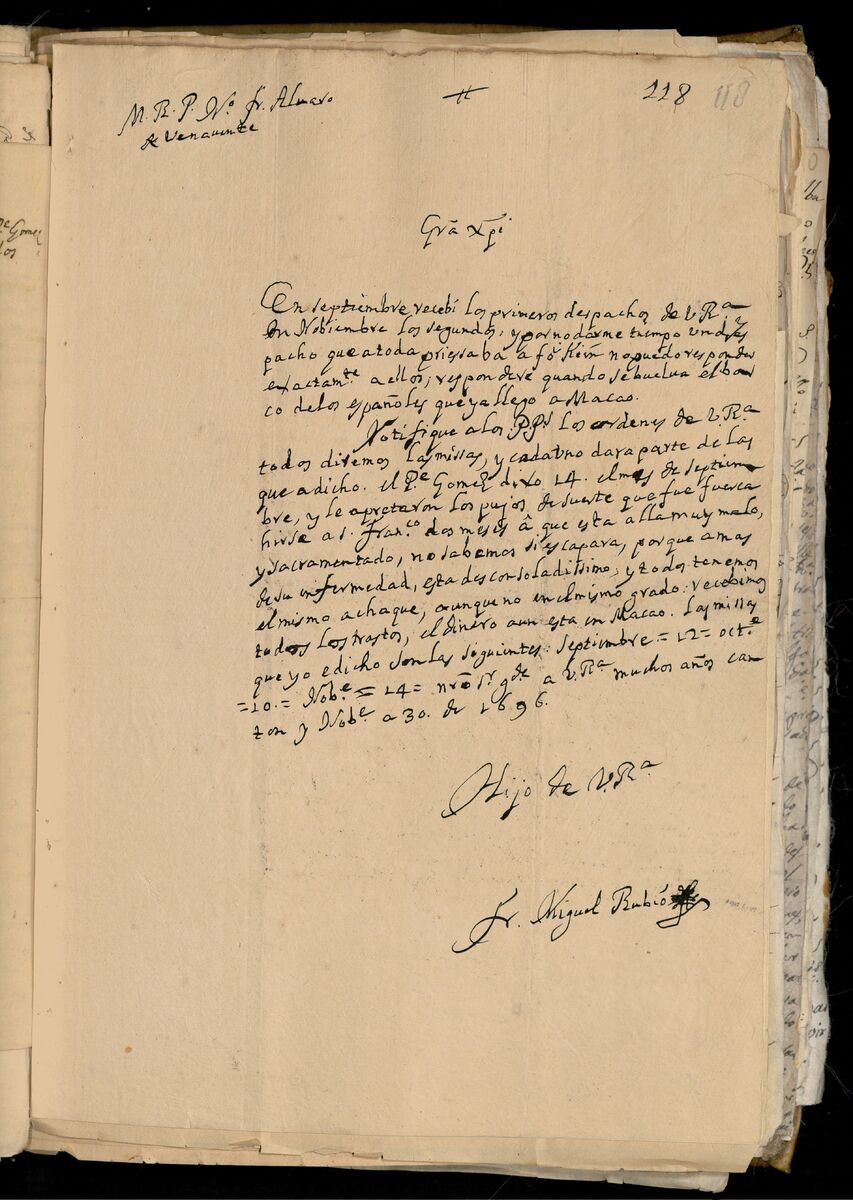 M. R. P. No. fr. Alvaro
de Venavente
118
118
Grã Xpi
En septiembre recebi los primeros despachos de V Ra
En Nobiembre los segundos; y por no darme tiempo un des
pacho que a toda priessa ba a fo Kien no puedo responder
exactamte. a ellos; respondere quando se buelva el bar
co de los españoles que ya llego a Macao.
Notifique a los PPs los ordenes de V. Ra
todos diremos las missas, y cada uno dara parte de las
que a dicho. el Pe Gomez dixo 14. el mes de septiem
bre, y le apretaron los pujos de suerte que fue fuerca
hirse a s. Franco. dos meses â que esta alla muy malo,
y sacramentado, no sabemos si escapara, porque a mas
de su enfermedad, esta desconsoladissimo; y todos tenemos
el mismo achaque, aunque no en el mismo grado: recebimos
todos los trastos, el dinero aun esta en Macao. Las missas
que yo e dicho son las siguientes: septiembre = 12 = octe.
= 10. = Nobe. = 14 = nrõ sr. gde a V. Ra muchos años can
ton y Nobe. a 30. de 1696.
Hijo de V. Ra
Fr. Miguel Rubio
Gomez